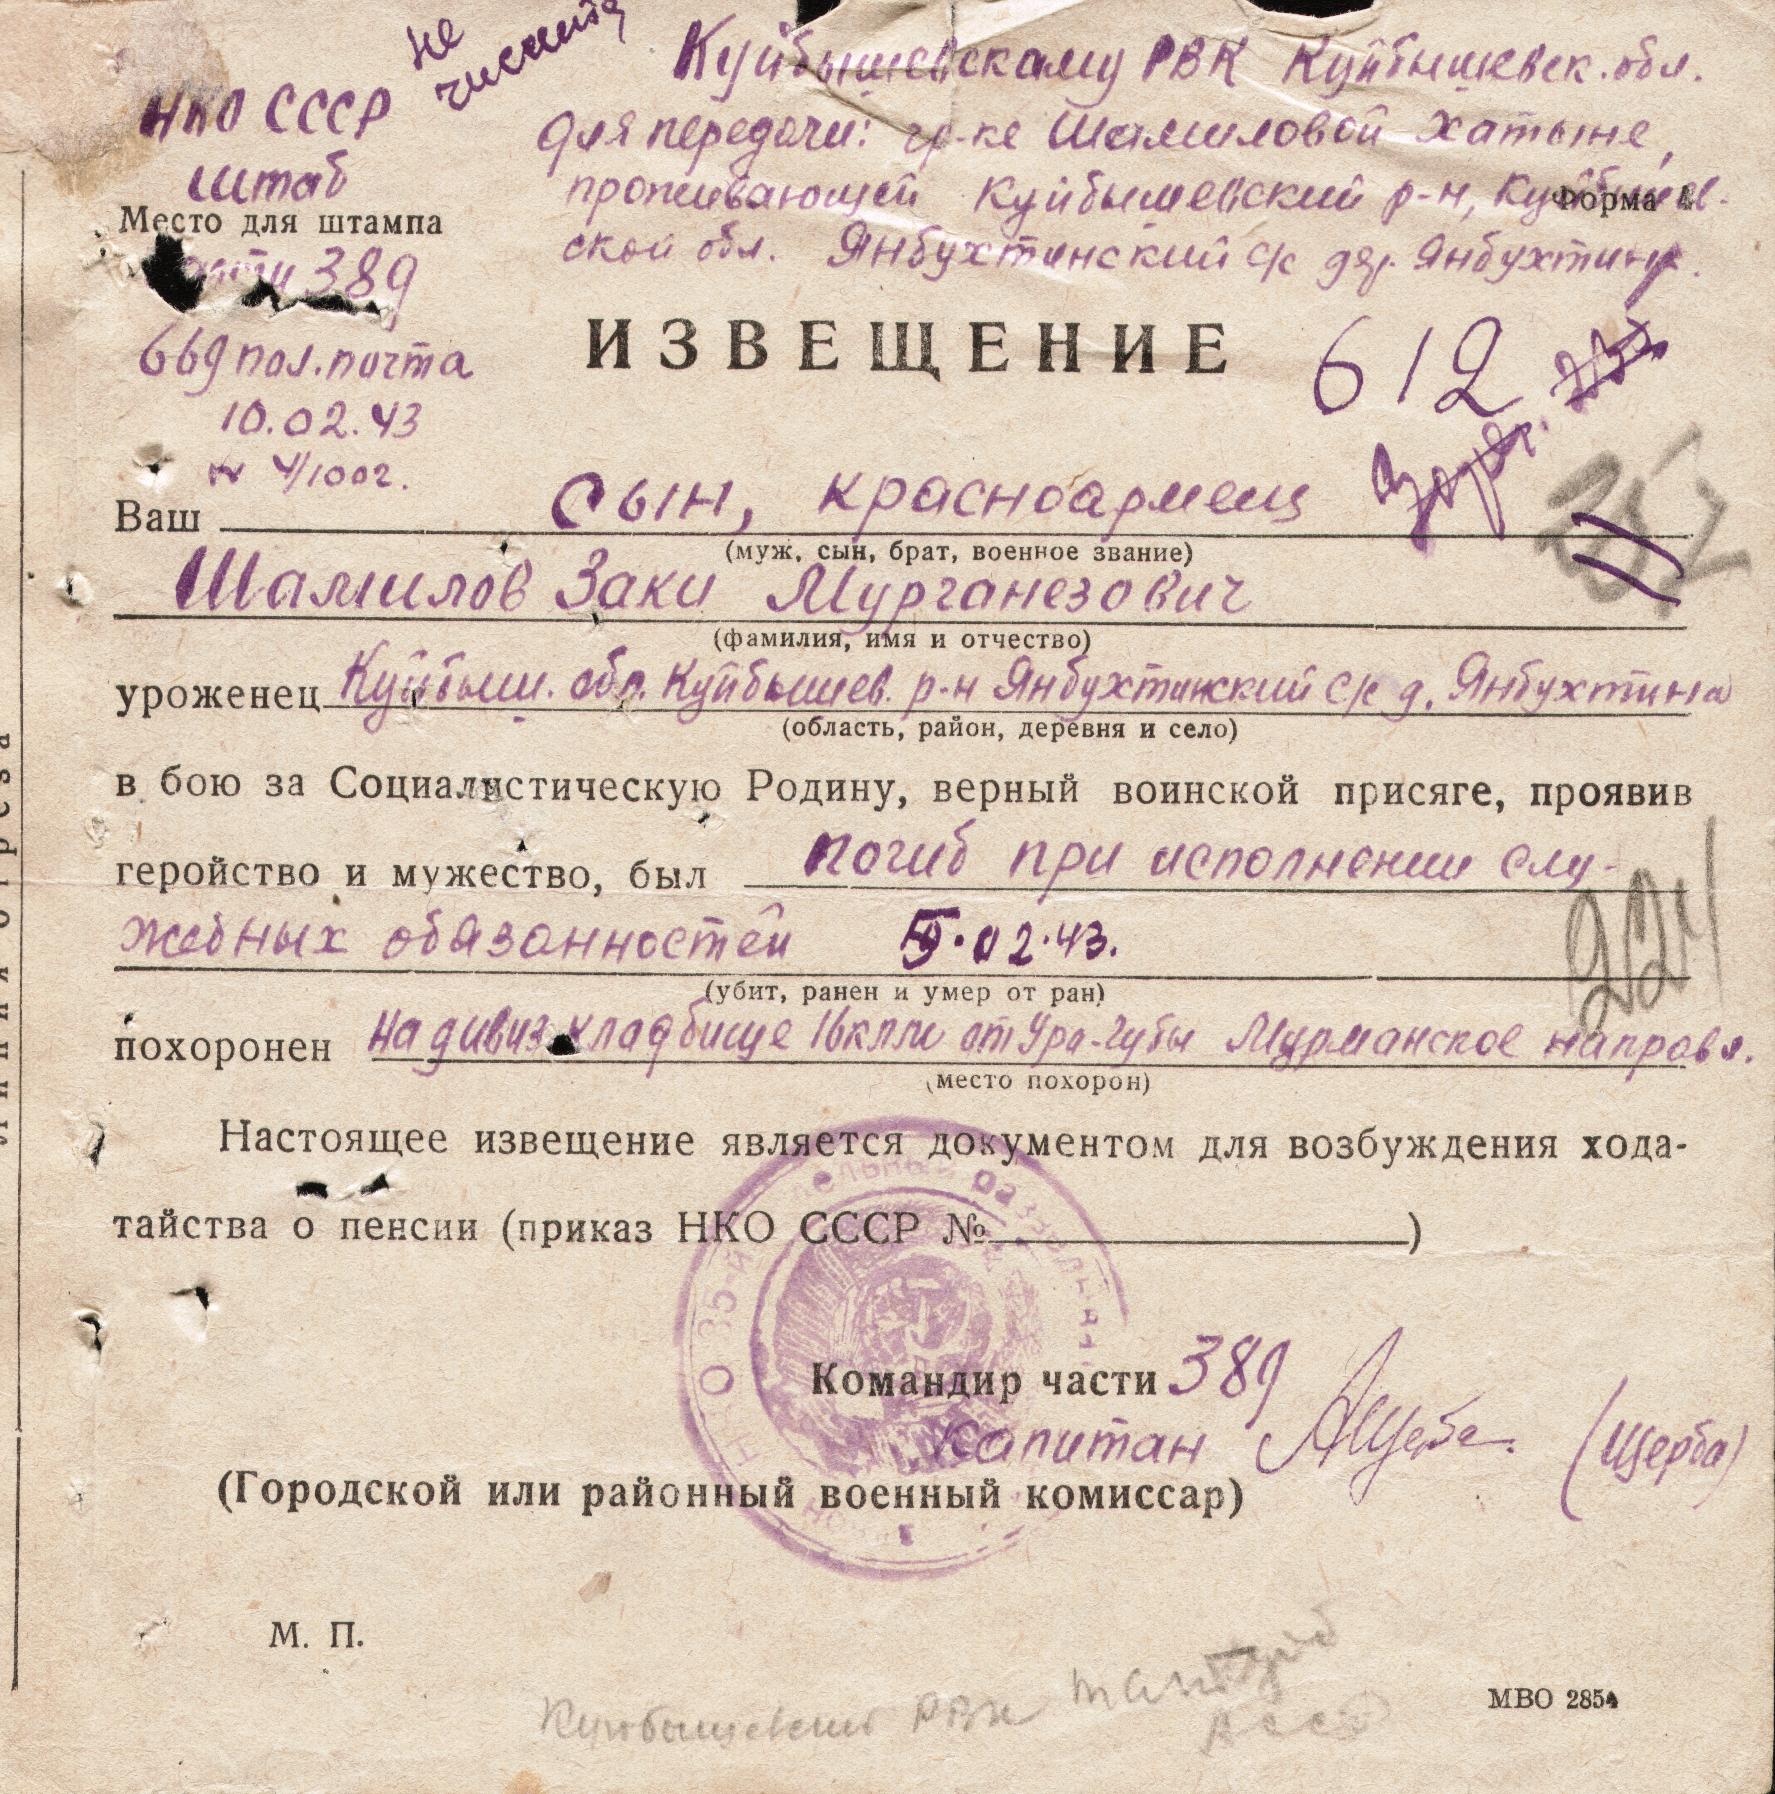 не
числится
Куйбышевскому РВК Куйбышевск. обл.
для передачи: гр-ке Шамиловой Хатыне,
проживающей Куйбышевский р-н, Куйбышев-
ской обл. Янбухтинский с/с дер. Янбухтина.
Форма
НКО СССР
штаб
Место для штампа
части 389
669 пол. почта
10.02.43
№ 4/1002.
ИЗВЕЩЕНИЕ
612
252
Ваш сын, красноармеец
(муж, сын, брат, военное звание)
Шамилов Заки Мурганезович
(фамилия, имя и отчество)
уроженец Куйбыш. обл. Куйбышев. р-н Янбухтинский с/с д. Янбухтина
(область, район, деревня и село)
в бою за Социалистическую Родину, верный воинской присяге, проявив
геройство и мужество, был погиб при исполнении слу-
жебных обязанностей 5.02.43.
(убит, ранен и умер от ран)
924
похоронен на дивиз. кладбище 16 клм от Ура-Губы Мурманское направл.
(место похорон)
Настоящее извещение является документом для возбуждения хода-
тайства о пенсии (приказ НКО СССР № )
Командир части 389
Капитан АЩерба (Щерба)
(Городской или районный военный комиссар)
М. П.
МВО 2854
Куйбышевский РВК
линия отреза